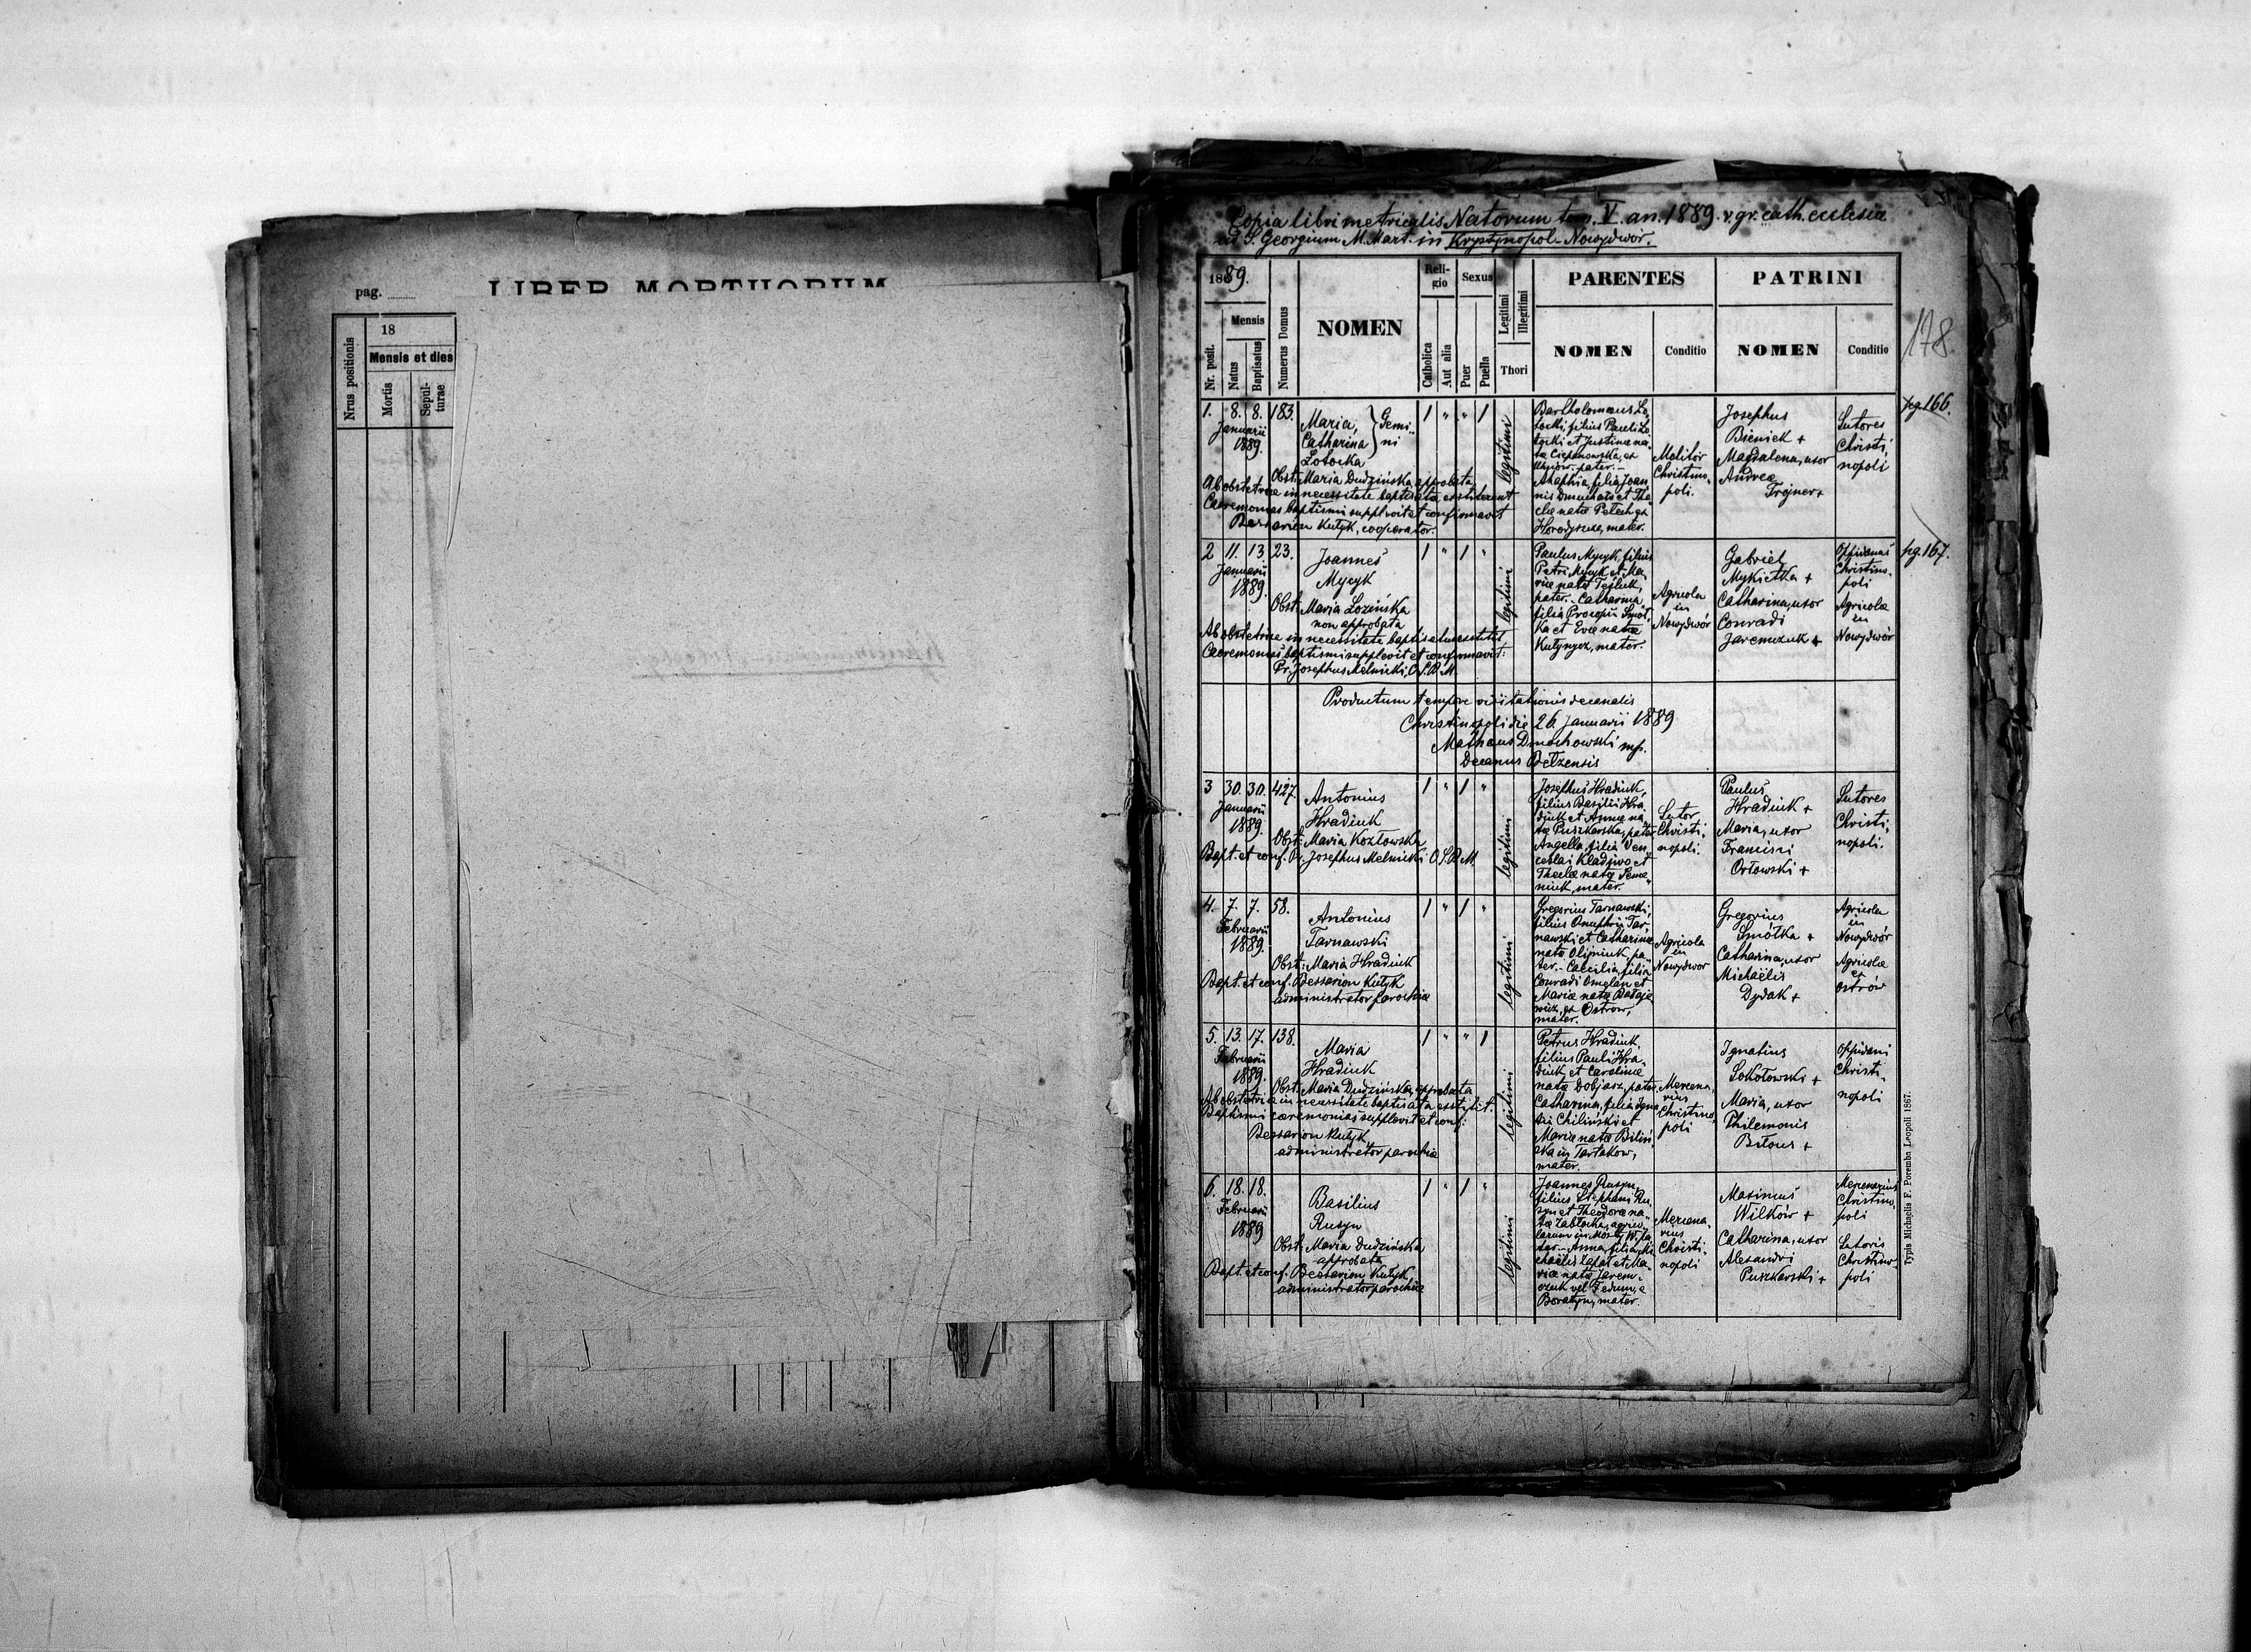 pag.
LIBER MORTUORUM
Nrus positionis
18
Mensis et dies
Mortis
Sepulturae
Copia libri metricalis Natorum tom. V. an. 1889. r. gr. cath. ecclesiæ
ad S. Georgium M. Mart. in Krystynopol-Nowydwor.
178.
1889.
Nr. posit.
Mensis
Natus
Baptisatus
Numerus Domus
NOMEN
Religio
Catholica
Aut alia
Sexus
Puer
Puella
Legitimi
Illegitimi
Thori
PARENTES
NOMEN
Conditio
PATRINI
NOMEN
Conditio
1. 8. 8. 183.
Januarii
1889.
Maria,
Catharina } Gemini
Lotocka
Obst. Maria Dudzińska approbata
Ab obstetrice in necessitate baptisatæ exstiterunt
Caeremonias baptismi supplevit et confirmavit
Bessarion Kutyk, cooperator.
1 " " 1
legitimi
Bartholomæus Lo-
tocki, filius Pauli Lo-
tocki et Justinæ na-
tæ
pater.-
Agaphia, filia Joan-
nis
et The-
clæ natæ Petech ex
mater.
Molitor
Christino-
poli.
Josephus
Bieniek +
Magdalena, uxor
Andreæ
Trojner +
Sutores
Christi-
nopoli
pg. 166.
2 11. 13. 23.
Januarii
1889.
Joannes
Mycyk
Obst. Maria Lozińska
non approbata
Ab obstetrice in necessitate baptisatus exstitit,
Caeremonias baptismi supplevit et confirmavit:
Pr. Josephus Melnicki, O. S. B. M.
1 " 1 "
legitimi
Paulus Mycyk, filius
Petri Mycyk et Ma-
riæ natæ Tesluk,
pater.- Catharina,
filia Procopii Smół-
ka et Evæ natæ
Kutynycz, mater.
Agricola
in
Nowydwór
Gabriel
Mykietka +
Catharina, uxor
Conradi
Jaremczuk +
Oppidanus
Christino-
poli
Agricolæ
in
Nowydwór
pg. 167.
Productum tempore visitationis decanalis
Christinopoli die 26. Januarii 1889
Mathæus Dmochowski mp.
Decanus Bełzensis
3 30. 30. 427.
Januarii
1889.
Antonius
Hradiuk
Obst. Maria Kozłowska
Bapt. et conf. Pr. Josephus Melnicki O. S. B. M.
1 " 1 "
legitimi
Josephus Hradiuk,
filius Basilii Hra-
diuk et Annæ na-
tæ Puszkarska, pater
Angella, filia Ven-
ceslai Kladywo et
Theclæ natæ Seme-
niuk, mater.
Sutor
Christi-
nopoli.
Paulus
Hradiuk +
Maria, uxor
Francisci
Orłowski +
Sutores
Christi-
nopoli.
4. 7. 7. 58.
Februarii
1889.
Antonius
Tarnawski
Obst.: Maria Hradiuk
Bapt. et conf. Bessarion Kutyk
administrator parochiæ
1 " 1 "
legitimi
Gregorius Tarnawski,
filius Onuphrii Tar-
nawski et Catharinæ
natæ Olijniuk, pa-
ter.- Cæcilia, filia
Conradi Omelan et
Mariæ natæ
ex Ostrow,
mater.
Agricola
in
Nowydwor
Gregorius
Smółka +
Catharina, uxor
Michaëlis
Dydak +
Agricola
in
Nowydwór
Agricolæ
ex
Ostrów
5. 13. 17. 138.
Februarii
1889.
Maria
Hradiuk
Obst. Maria Dudzińska, approbata
Ab obstetrice in necessitate baptisata exstitit.
Baptismi cæremonias supplevit et conf:
Bessarion Kutyk
administrator parochiæ
1 " " 1
legitimi
Petrus Hradiuk,
filius Pauli Hra-
diuk et Carolinæ
natæ Dobjasz, pater
Catharina, filia Igna-
tii Chiliński et
Mariæ natæ Biliń-
ska in Tartakow,
mater.
Mercena-
rius
Christino-
poli
Ignatius
Sokołowski +
Maria, uxor
Philemonis
Bilous +
Oppidani
Christi-
nopoli
6. 18. 18.
Februarii
1889
Basilius
Rusyn
Obst. Maria Dudzińska
approbata
Bapt. et conf. Bessarion Kutyk,
administrator parochiæ
1 " 1 "
legitimi
Joannes Rusyn,
filius Stephani Ru-
syn et Theodoræ na-
tæ Zabłocka, agrico-
larum in Mosty W. pa-
ter.- Anna, filia Mi-
chaëlis Łapat et Ma-
riæ natæ Jarem-
czuk vel Fedun, e
Boratyn, mater.
Mercena-
rius
Christi-
nopoli
Maximus
Wilków +
Catharina, uxor
Alexandri
Puszkarski +
Mercenarius
Christino-
poli
Sutoris
Christino-
poli
Typis Michaelis F. Poremba Leopoli 1867.